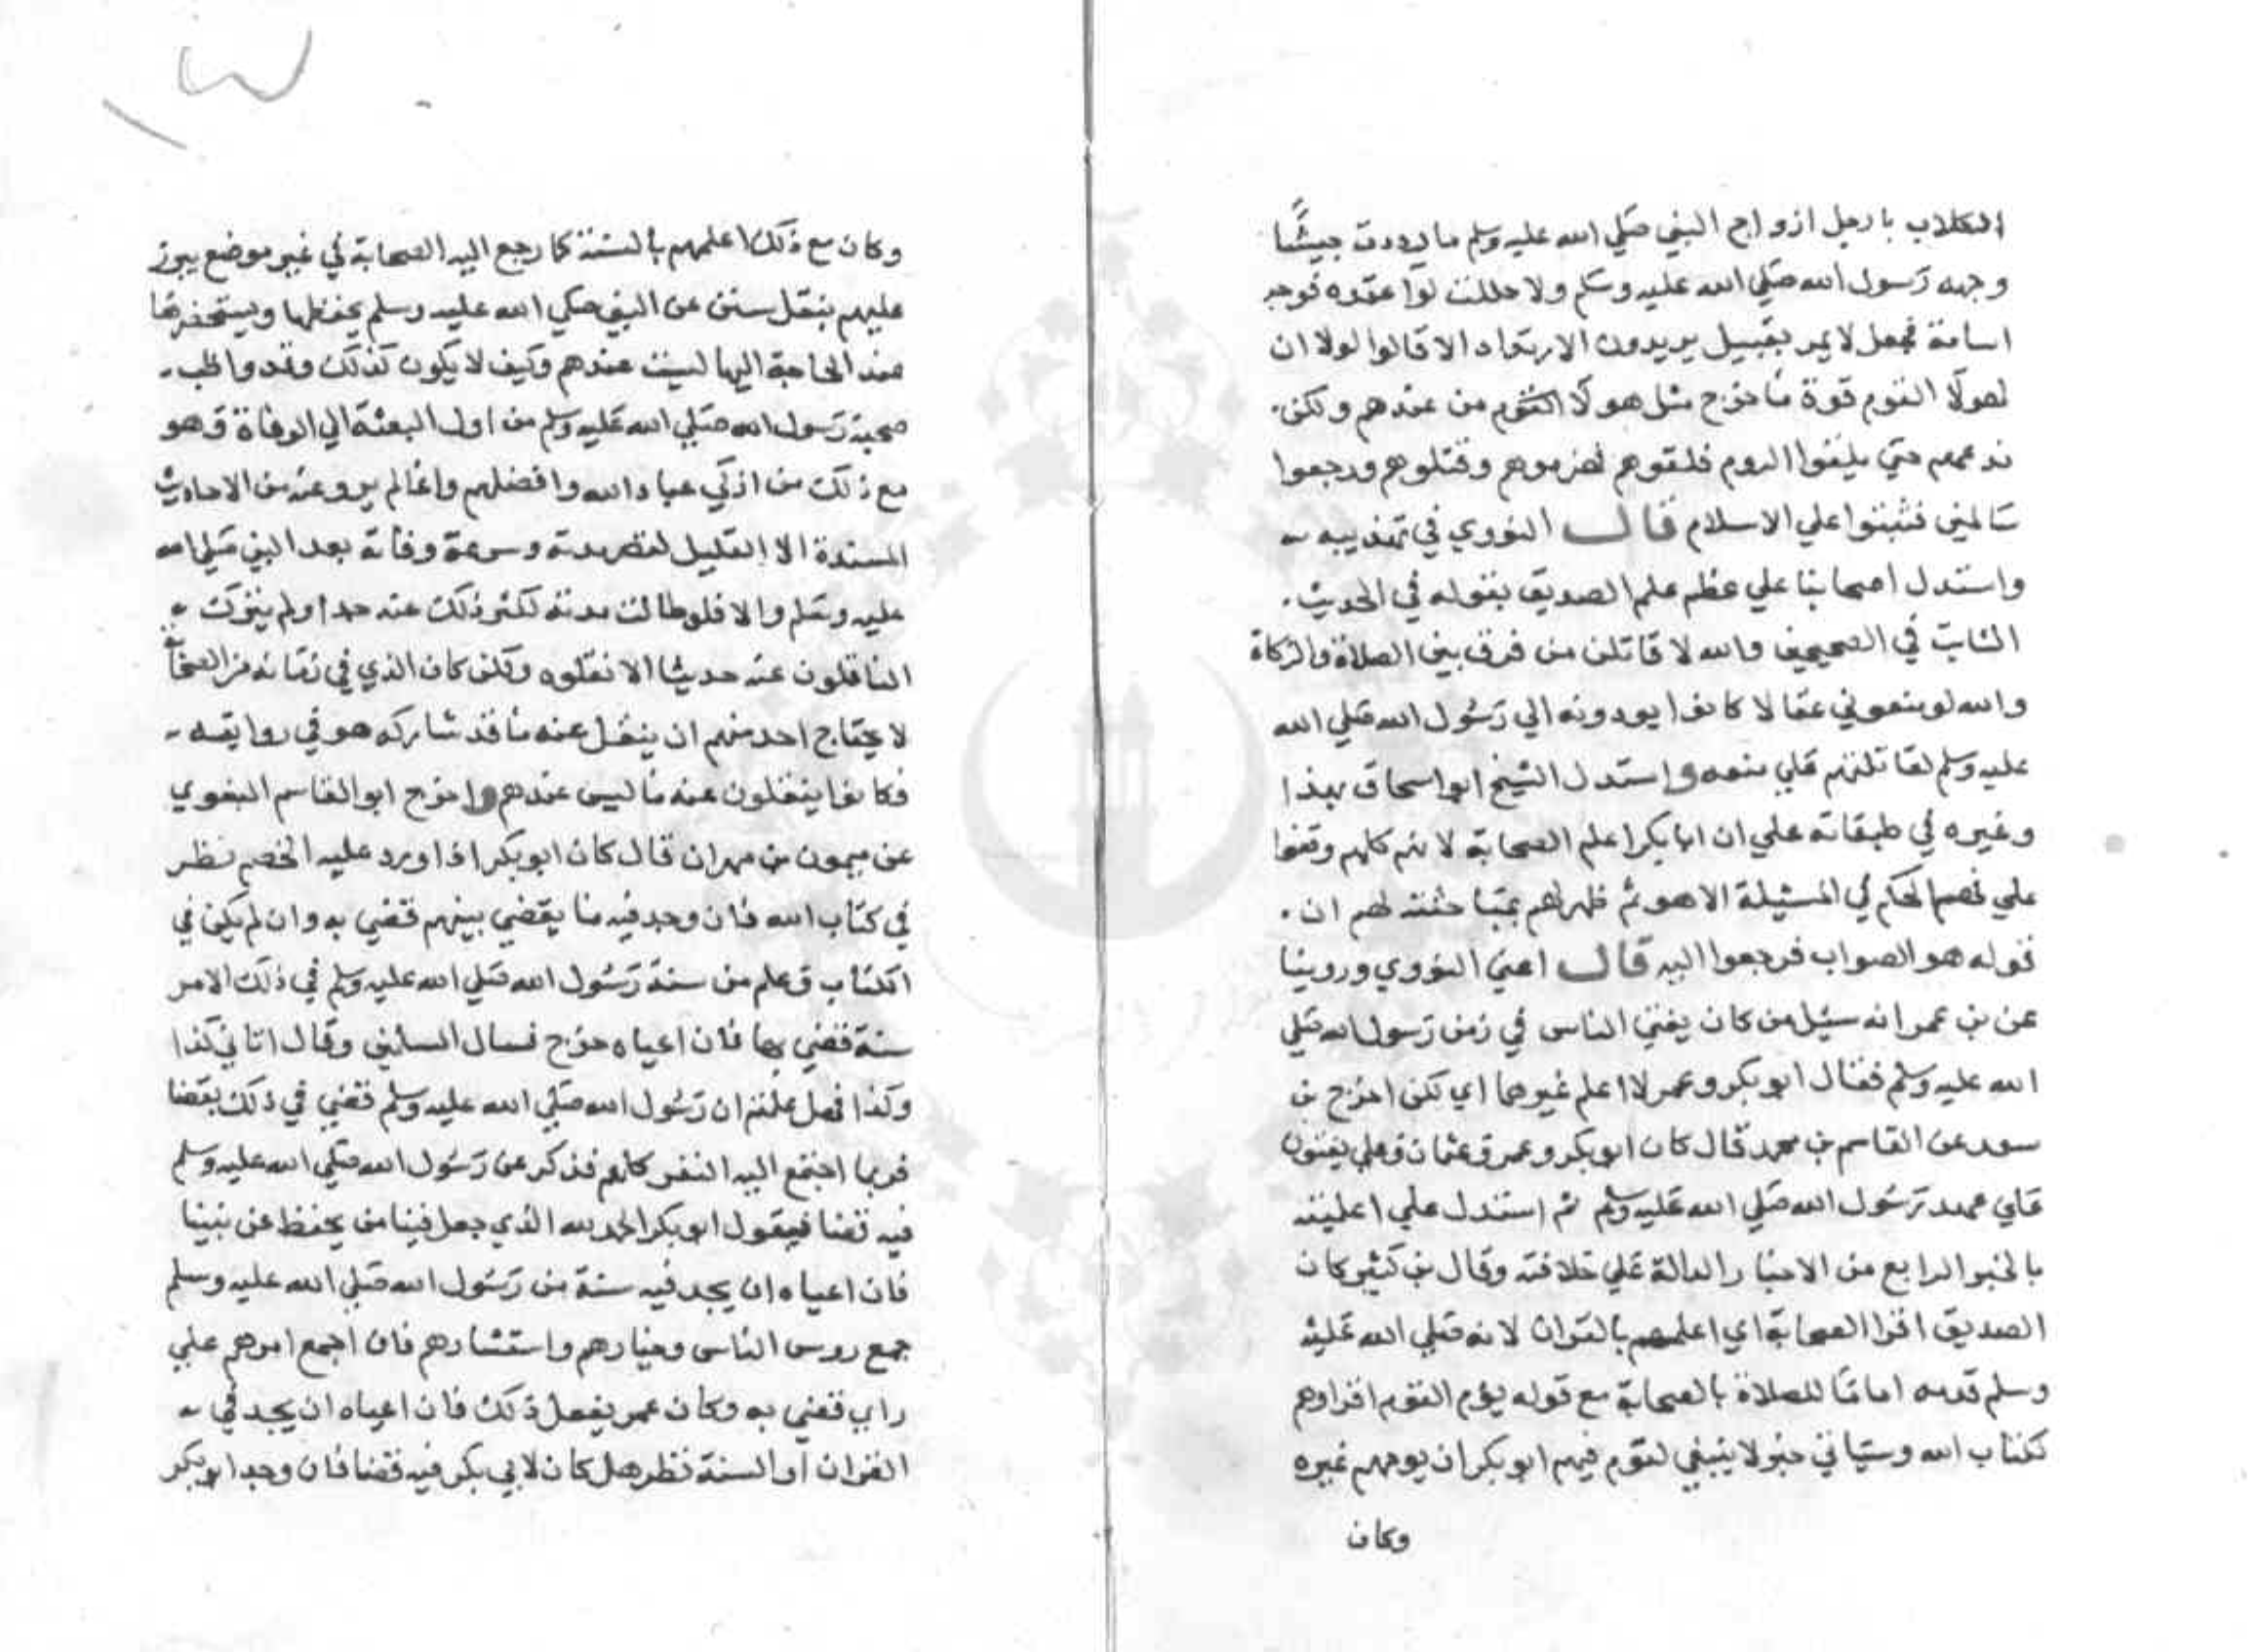 الكلاب بارجل ازواج النبي صلي الله عليه وسلم ما رددت جيشًا
وجهه رسول الله صلي الله عليه وسلم ولا حللت لوا عقده فوجه
اسامة فجعل لا يمر بقبيل يريدون الارتداد الا قالوا لولا ان
لهولا القوم قوة ما خرج مثل هولا القوم من عندهم ولكن
ندعهم حتي يلقوا الروم فلقوهم فهزموهم وقتلوهم ورجعوا
سالمين فثبتوا علي الاسلام قال النووي في تهذيبه
واستدل اصحابنا علي عظم علم الصديق بقوله في الحديث
الثابت في الصحيحين والله لا قاتلن من فرق بين الصلاة والزكاة
والله لو منعوني عقالا كانوا يودونه الي رسول الله صلي الله
عليه وسلم لقاتلتهم علي منعه واستدل الشيخ ابو اسحاق بهذا
وغيره في طبقاته علي ان ابا بكر اعلم الصحابة لانهم كلهم وقفوا
علي فهم الحكم في المسئيلة الا هو ثم ظهر لهم بمباحثته لهم ان
قوله هو الصواب فرجعوا اليه قال اعني النووي وروينا
عن بن عمر انه سئيل من كان يفتي الناس في زمن رسول الله صلي
الله عليه وسلم فقال ابو بكر وعمر لا اعلم غيرهما اي لكن اخرج بن
سعد عن القاسم بن محمد قال كان ابو بكر وعمر وعثمان وعلي يفتون
علي عهد رسول الله صلي الله عليه وسلم ثم استدل علي اعلميته
بالخبر الرابع من الاخبار الدالة علي خلافته وقال بن كثير كان
الصديق اقرا الصحابة اي اعلمهم بالقران لانه صلي الله عليه
وسلم قدمه اماما للصلاة بالصحابة مع قوله يوم القوم اقراوهم
لكتاب الله وسياتي خبر لا ينبغي لقوم فيهم ابو بكر ان يومهم غيره
وكان
وكان مع ذلك اعلمهم بالسنة كما رجع اليه الصحابة في غير موضع يبرز
عليهم بنقل سنن عن النبي صلي الله عليه وسلم يحفظها ويستحضرها
عند الحاجة اليها ليست عندهم وكيف لا يكون كذلك وقد واظب
صحبة رسول الله صلي الله عليه وسلم من اول البعثة الي الوفاة وهو
مع ذلك من ازكي عباد الله وافضلهم وانما لم يرو عنه من الاحاديث
المسندة الا القليل لقصر مدته وسرعة وفاته بعد النبي صلي الله
عليه وسلم والا فلو طالت مدته لكثر ذلك عنه جدا ولم يترك
الناقلون عنه حديثا الا نقلوه ولكن كان الذي في زمانه من الصحابة
لا يحتاج احد منهم ان ينقل عنه ما قد شاركه هو في روايته
فكانوا ينقلون عنه ما ليس عندهم واخرج ابو القاسم البغوي
عن ميمون بن مهران قال كان ابو بكر اذا ورد عليه الخصم نظر
في كتاب الله فان وجد فيه ما يقضي بينهم قضي به وان لم يكن في
الكتاب وعلم من سنة رسول الله صلي الله عليه وسلم في ذلك الامر
سنة قضي بها فان اعياه خرج فسال المسلمين وقال اتاني كذا
وكذا فهل علمتم ان رسول الله صلي الله عليه وسلم قضي في ذلك بقضا
فربما اجتمع اليه النفر كلهم فذكر عن رسول الله صلي الله عليه وسلم
فيه قضا فيقول ابو بكر الحمد لله الذي جعل فينا من يحفظ عن نبينا
فان اعياه ان يجد فيه سنة من رسول الله صلي الله عليه وسلم
جمع روس الناس وخيارهم واستشارهم فان اجمع امرهم علي
راي قضي به وكان عمر يفعل ذلك فان اعياه ان يجد في
القران او السنة نظر هل كان لابي بكر فيه قضا فان وجد ابو بكر